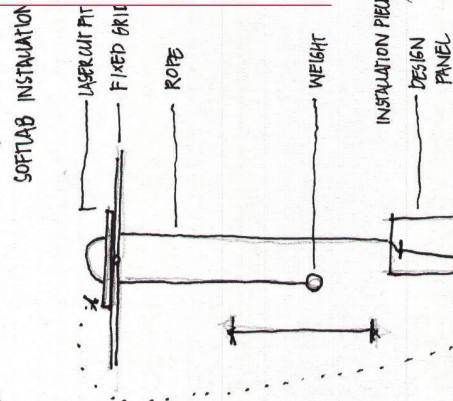 SOFTLAB INSTALLATION
LASERCUT FIT
FIXED GRID
ROPE
WEIGHT
INSTALLATION PIEC
DESIGN
PANEL